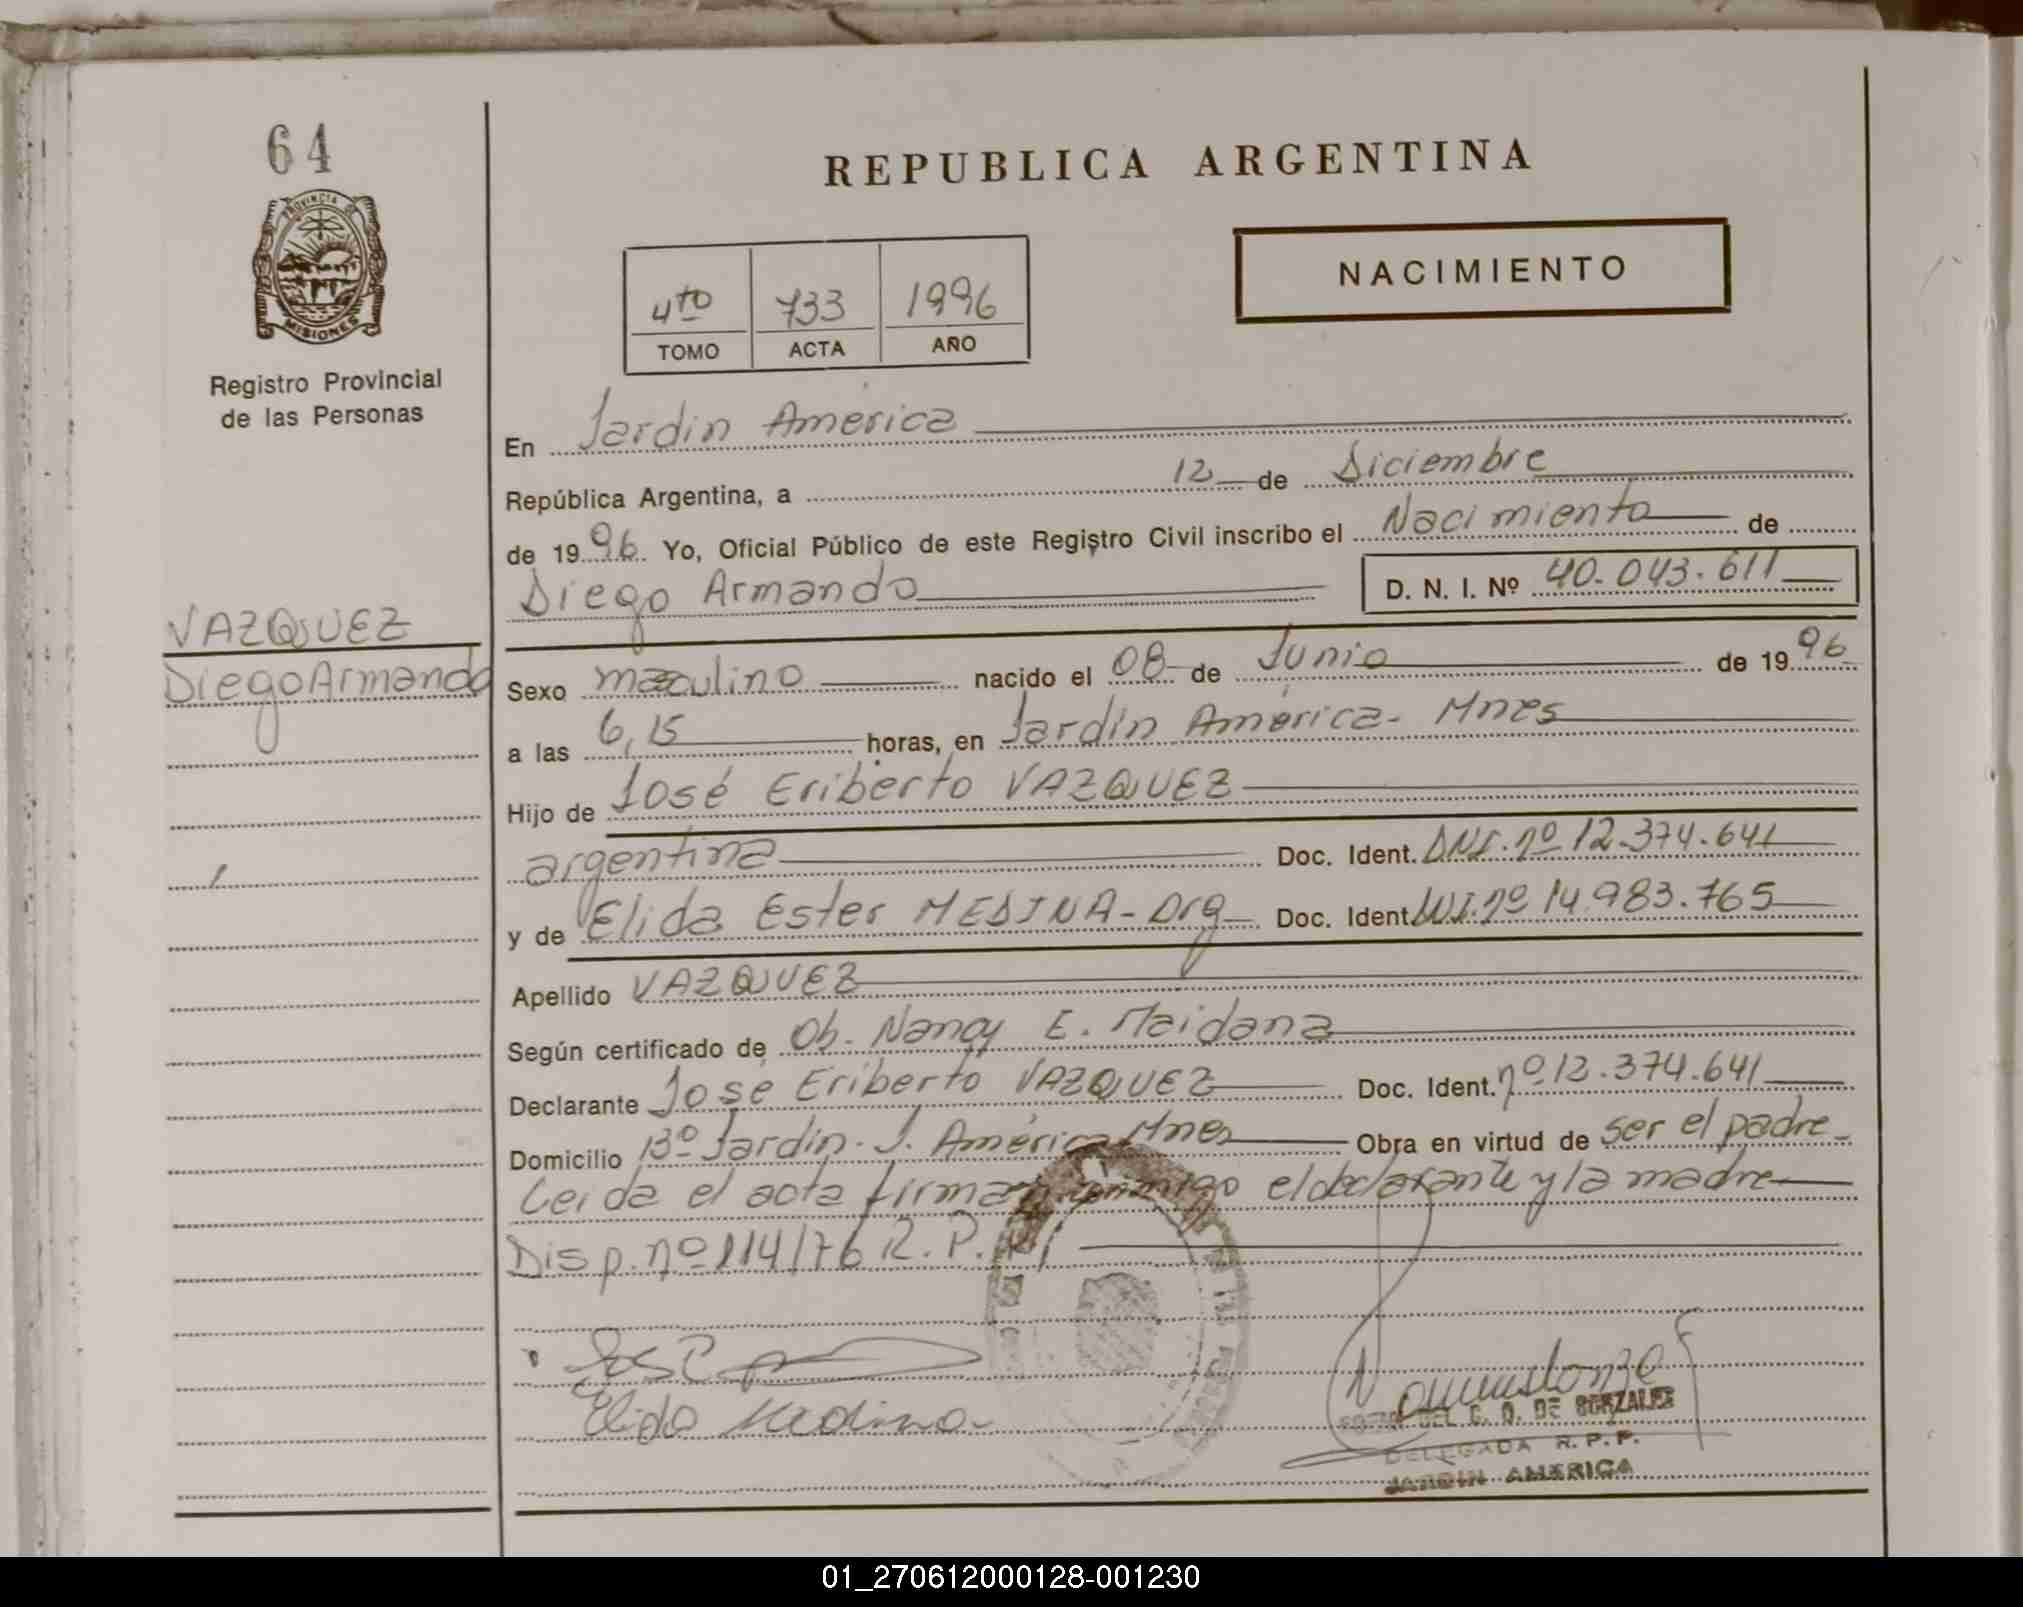 64
PROVINCIA DE
MISIONES
Registro Provincial
de las Personas
REPUBLICA ARGENTINA
NACIMIENTO
4to 733 1996
TOMO ACTA AÑO
En Jardin America
República Argentina, a 12 de Diciembre
de 1996. Yo, Oficial Público de este Registro Civil inscribo el Nacimiento de
Diego Armando D. N. I. Nº 40.043.611
VAZQUEZ
Diego Armando
Sexo masculino nacido el 08 de Junio de 1996
a las 6,15 horas, en Jardin América- Mnes
Hijo de José Eriberto VAZQUEZ
argentina Doc. Ident. DNI. nº 12.374.641
y de Elida Ester MEDINA - Arg Doc. Ident. nº 14.983.765
Apellido VAZQUEZ
Según certificado de Ob. Nancy E. Maidana
Declarante José Eriberto VAZQUEZ Doc. Ident. nº 12.374.641
Domicilio Bº Jardin. J. América Mnes Obra en virtud de ser el padre
Leida el acta firman conmigo el declarante y la madre
Disp. nº 114/76 R. P. P.
José
Elida Medina
DEL C. D. DE GONZALEZ
DELEGADA R. P. P.
JARDIN AMERICA
01_270612000128-001230